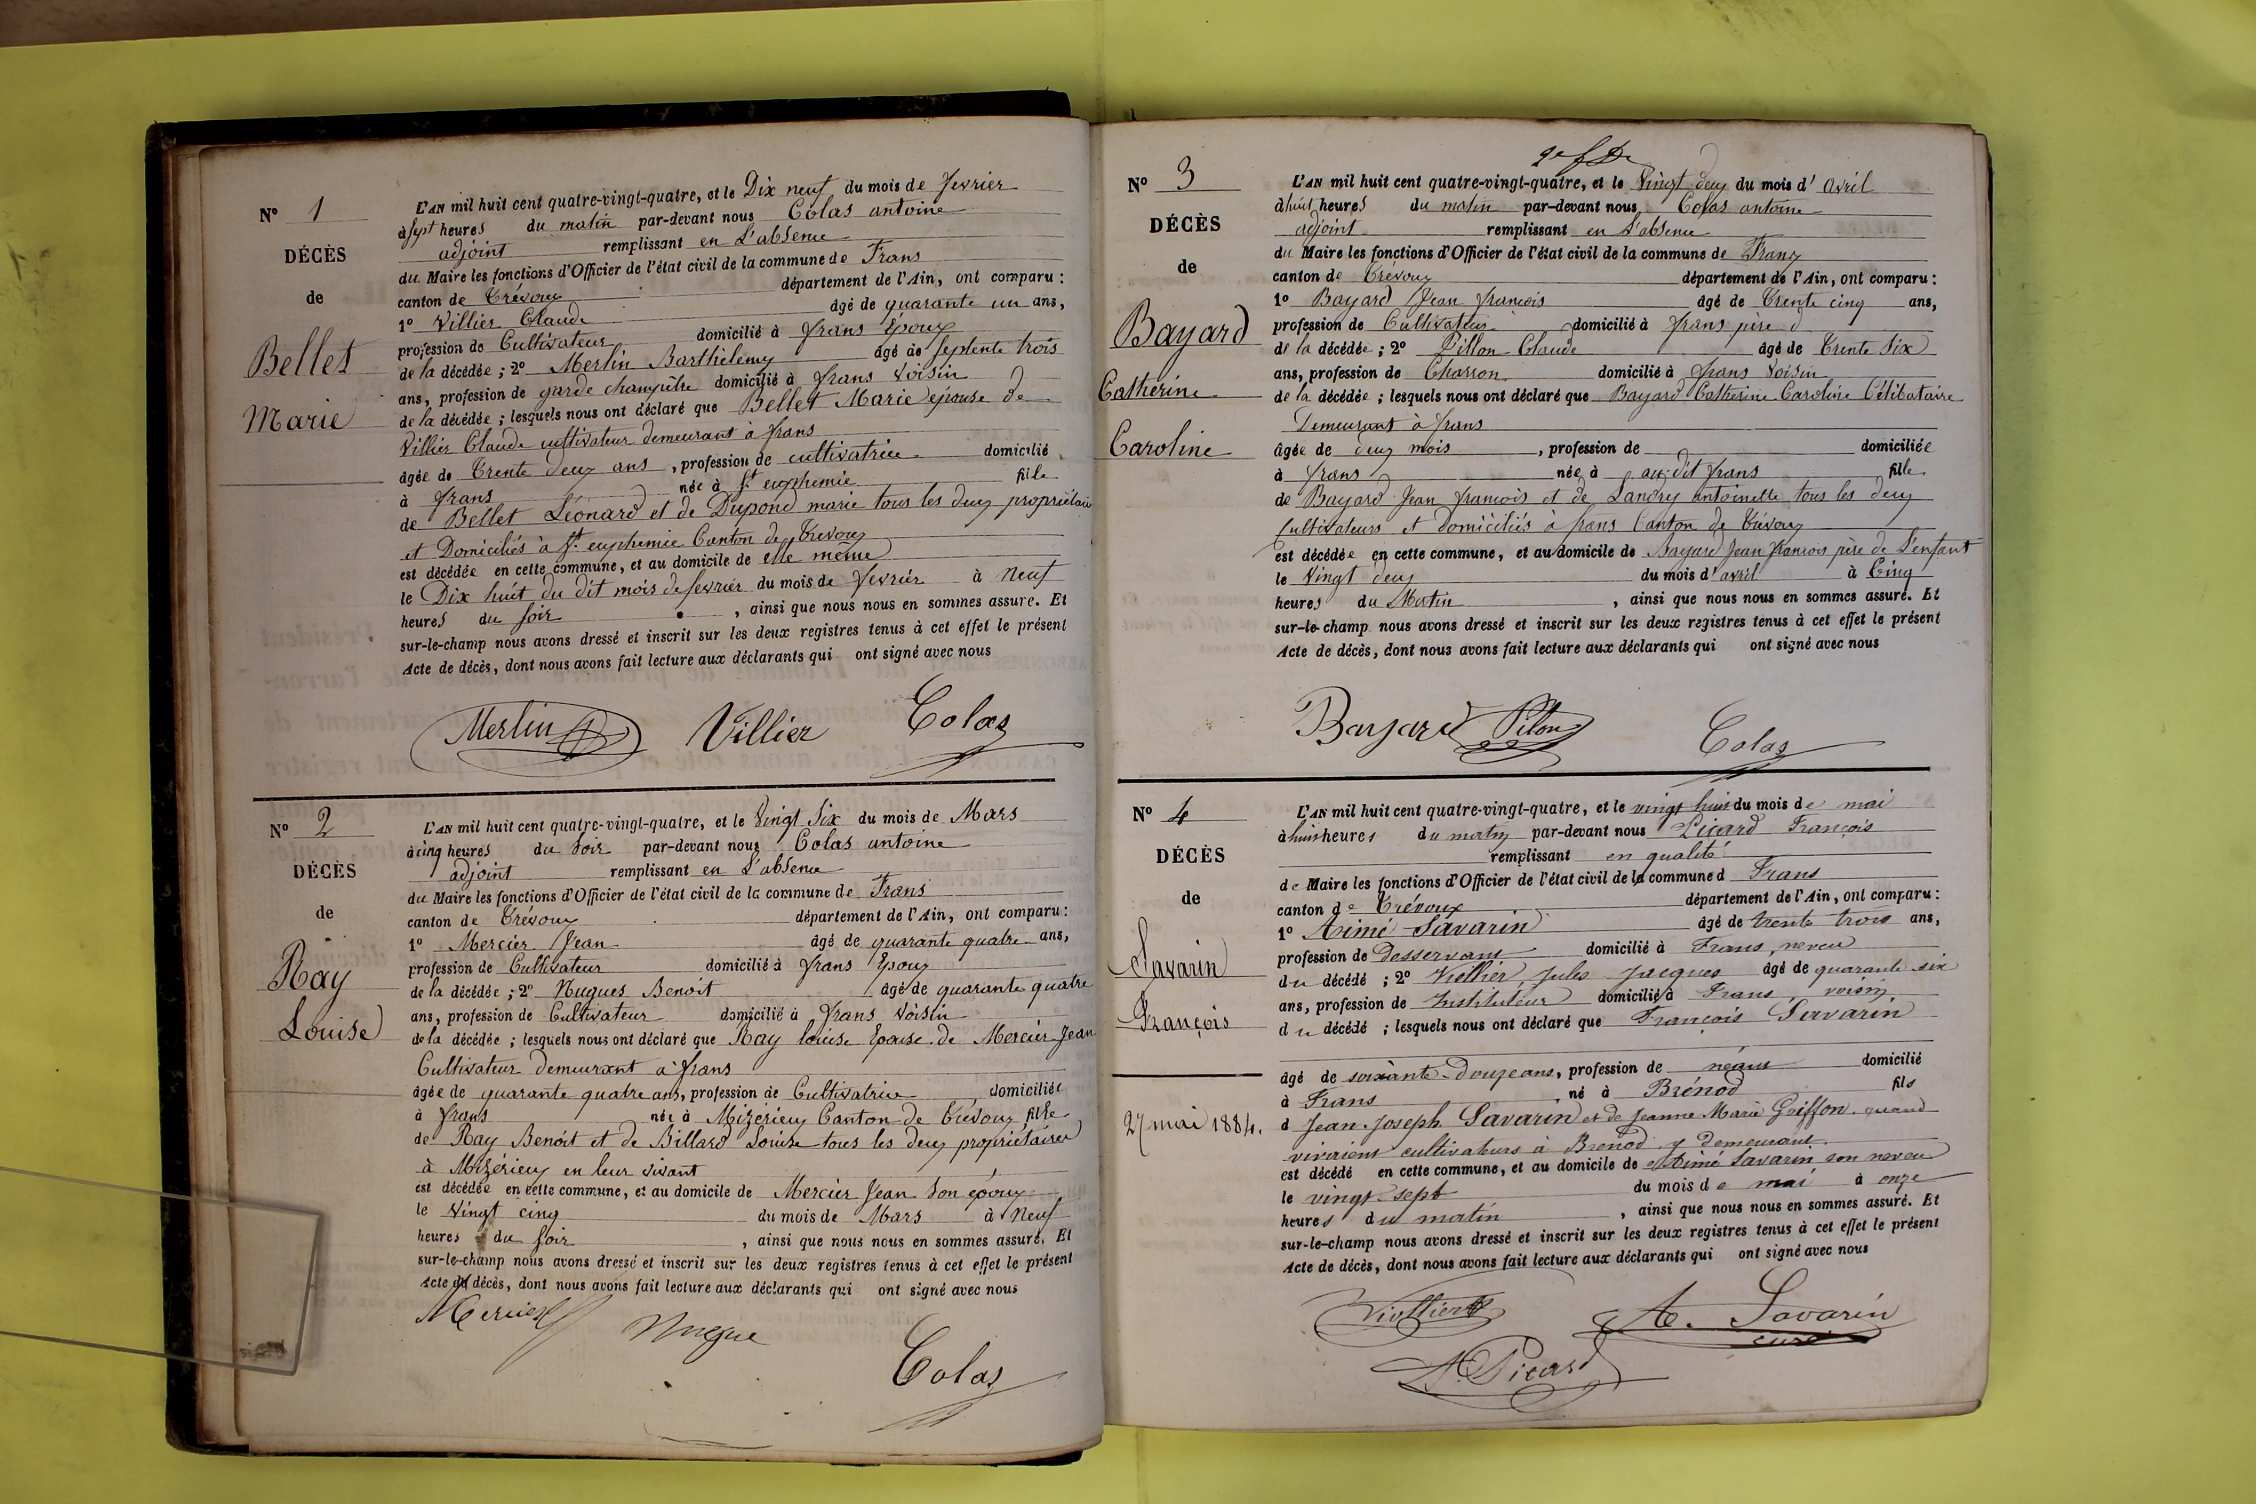 N° 1
DÉCÈS
de
Bellet
Marie
L'AN mil huit cent quatre-vingt-quatre, et le Dix neuf du mois de fevrier
à sept heures du matin par-devant nous Colas antoine
adjoint remplissant en L'absence
du Maire les fonctions d'Officier de l'état civil de la commune de Frans
canton de Trévoux département de l'Ain, ont comparu :
1° Villier Claude âgé de quarante un ans,
profession de Cultivateur domicilié à frans Epoux
de la décédée ; 2° Merlin Barthelemy âgé de septente trois
ans, profession de garde champêtre domicilié à frans Voisin
de la décédée ; lesquels nous ont déclaré que Bellet Marie epouse de
Villier Claude cultivateur demeurant à frans
âgée de Trente deux ans, profession de cultivatrice domicilié
à frans née à St euphemie fille
de Bellet Léonard et de Dupond marie tous les deux propriétaires
et Domiciliés à St. euphemie Canton de Trevoux
est décédée en cette commune, et au domicile de elle même
le Dix huit du dit mois de fevrier du mois de fevrier à Neuf
heures du soir, ainsi que nous nous en sommes assuré. Et
sur-le-champ nous avons dressé et inscrit sur les deux registres tenus à cet effet le présent
Acte de décès, dont nous avons fait lecture aux déclarants qui ont signé avec nous
Merlin Villier Colas
N° 2
DÉCÈS
de
Ray
Louise
L'AN mil huit cent quatre-vingt-quatre, et le Vingt Six du mois de Mars
à cinq heures du soir par-devant nous Colas antoine
adjoint remplissant en L'absence
du Maire les fonctions d'Officier de l'état civil de la commune de Frans
canton de Trévoux département de l'Ain, ont comparu :
1° Mercier Jean âgé de quarante quatre ans,
profession de Cultivateur domicilié à frans Epoux
de la décédée ; 2° Nugues Benoit âgé de quarante quatre
ans, profession de Cultivateur domicilié à frans Voisin
de la décédée ; lesquels nous ont déclaré que Ray louise Epouse de Mercier Jean
Cultivateur demeurant à frans
âgée de quarante quatre ans, profession de Cultivatrice domiciliée
à frans née à Mizerieux Canton de Trévoux fille
de Ray Benoit et de Billard Louise tous les deux propriétaires
à Mizérieux en leur vivant
est décédée en cette commune, et au domicile de Mercier Jean Son époux
le Vingt cinq du mois de Mars à Neuf
heures du soir, ainsi que nous nous en sommes assuré. Et
sur-le-champ nous avons dressé et inscrit sur les deux registres tenus à cet effet le présent
Acte de décès, dont nous avons fait lecture aux déclarants qui ont signé avec nous
Mercier Nugue Colas
N° 3
DÉCÈS
de
Bayard
Catherine
Caroline
L'AN mil huit cent quatre-vingt-quatre, et le Vingt deux du mois d'avril
à huit heures du matin par-devant nous Colas antoine
adjoint remplissant en L'absence
du Maire les fonctions d'Officier de l'état civil de la commune de Frans
canton de Trévoux département de l'Ain, ont comparu :
1° Bayard Jean francois âgé de Trente cinq ans,
profession de Cultivateur domicilié à frans père
de la décédée ; 2° Pillon Claude âgé de Trente Six
ans, profession de Charron domicilié à frans Voisin
de la décédée ; lesquels nous ont déclaré que Bayard Catherine Caroline Célibataire
Demeurant à frans
âgée de deux mois, profession de domiciliée
à frans née à au dit frans fille
de Bayard Jean francois et de Landry antoinette tous les deux
Cultivateurs et Domiciliés à frans Canton de Trévoux
est décédée en cette commune, et au domicile de Bayard Jean francois père de L'enfant
le Vingt deux du mois d'avril à Cinq
heures du Matin, ainsi que nous nous en sommes assuré. Et
sur-le-champ nous avons dressé et inscrit sur les deux registres tenus à cet effet le présent
Acte de décès, dont nous avons fait lecture aux déclarants qui ont signé avec nous
Bayard Pilon Colas
N° 4
DÉCÈS
de
Savarin
François
27 mai 1884.
L'AN mil huit cent quatre-vingt-quatre, et le vingt huit du mois de mai
à huit heures du matin par-devant nous Picard François
remplissant en qualité
de Maire les fonctions d'Officier de l'état civil de la commune d Frans
canton de Trévoux département de l'Ain, ont comparu :
1° Aimé Savarin âgé de trente trois ans,
profession de Desservant domicilié à Frans, neveu
du décédé ; 2° Viollier, Jules Jacques âgé de quarante six
ans, profession de Instituteur domicilié à Frans, voisin
du décédé ; lesquels nous ont déclaré que François Savarin
âgé de soixante-douze ans, profession de néant domicilié
à Frans né à Brénod fils
d Jean-Joseph Savarin et de Jeanne Marie Goiffon quand
vivaient cultivateurs à Brénod y demeurant
est décédé en cette commune, et au domicile de Aimé Savarin son neveu
le vingt-sept du mois de mai à onze
heures du matin, ainsi que nous nous en sommes assuré. Et
sur-le-champ nous avons dressé et inscrit sur les deux registres tenus à cet effet le présent
Acte de décès, dont nous avons fait lecture aux déclarants qui ont signé avec nous
Viollier A. Savarin
curé
Picard